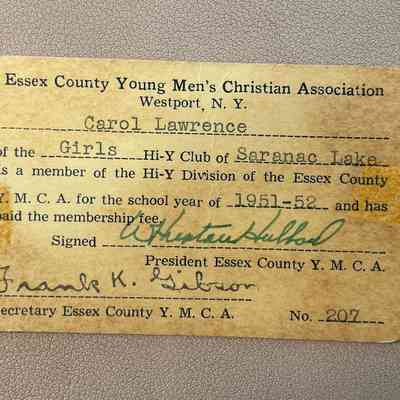 Essex County Young Men's Christian Association
Westport, N. Y.
Carol Lawrence
of the Girls Hi-Y Club of Saranac Lake
is a member of the Hi-Y Division of the Essex County
Y. M. C. A. for the school year of 1951-52 and has
paid the membership fee.
Signed
President Essex County Y. M. C. A.
Frank K. Gibson
Secretary Essex County Y. M. C. A. No. 207